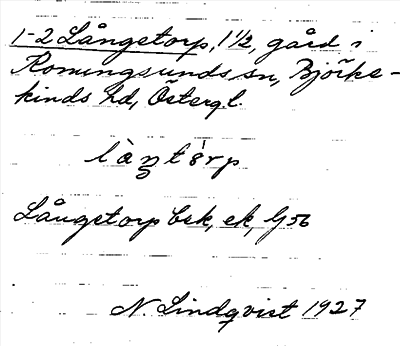 1-2 Långetorp, 1 1/2, gård i
Konungsunds sn, Björke-
kinds hd, Östergl.
Långetorp bsk, ek, G 56
N. Lindqvist 1927